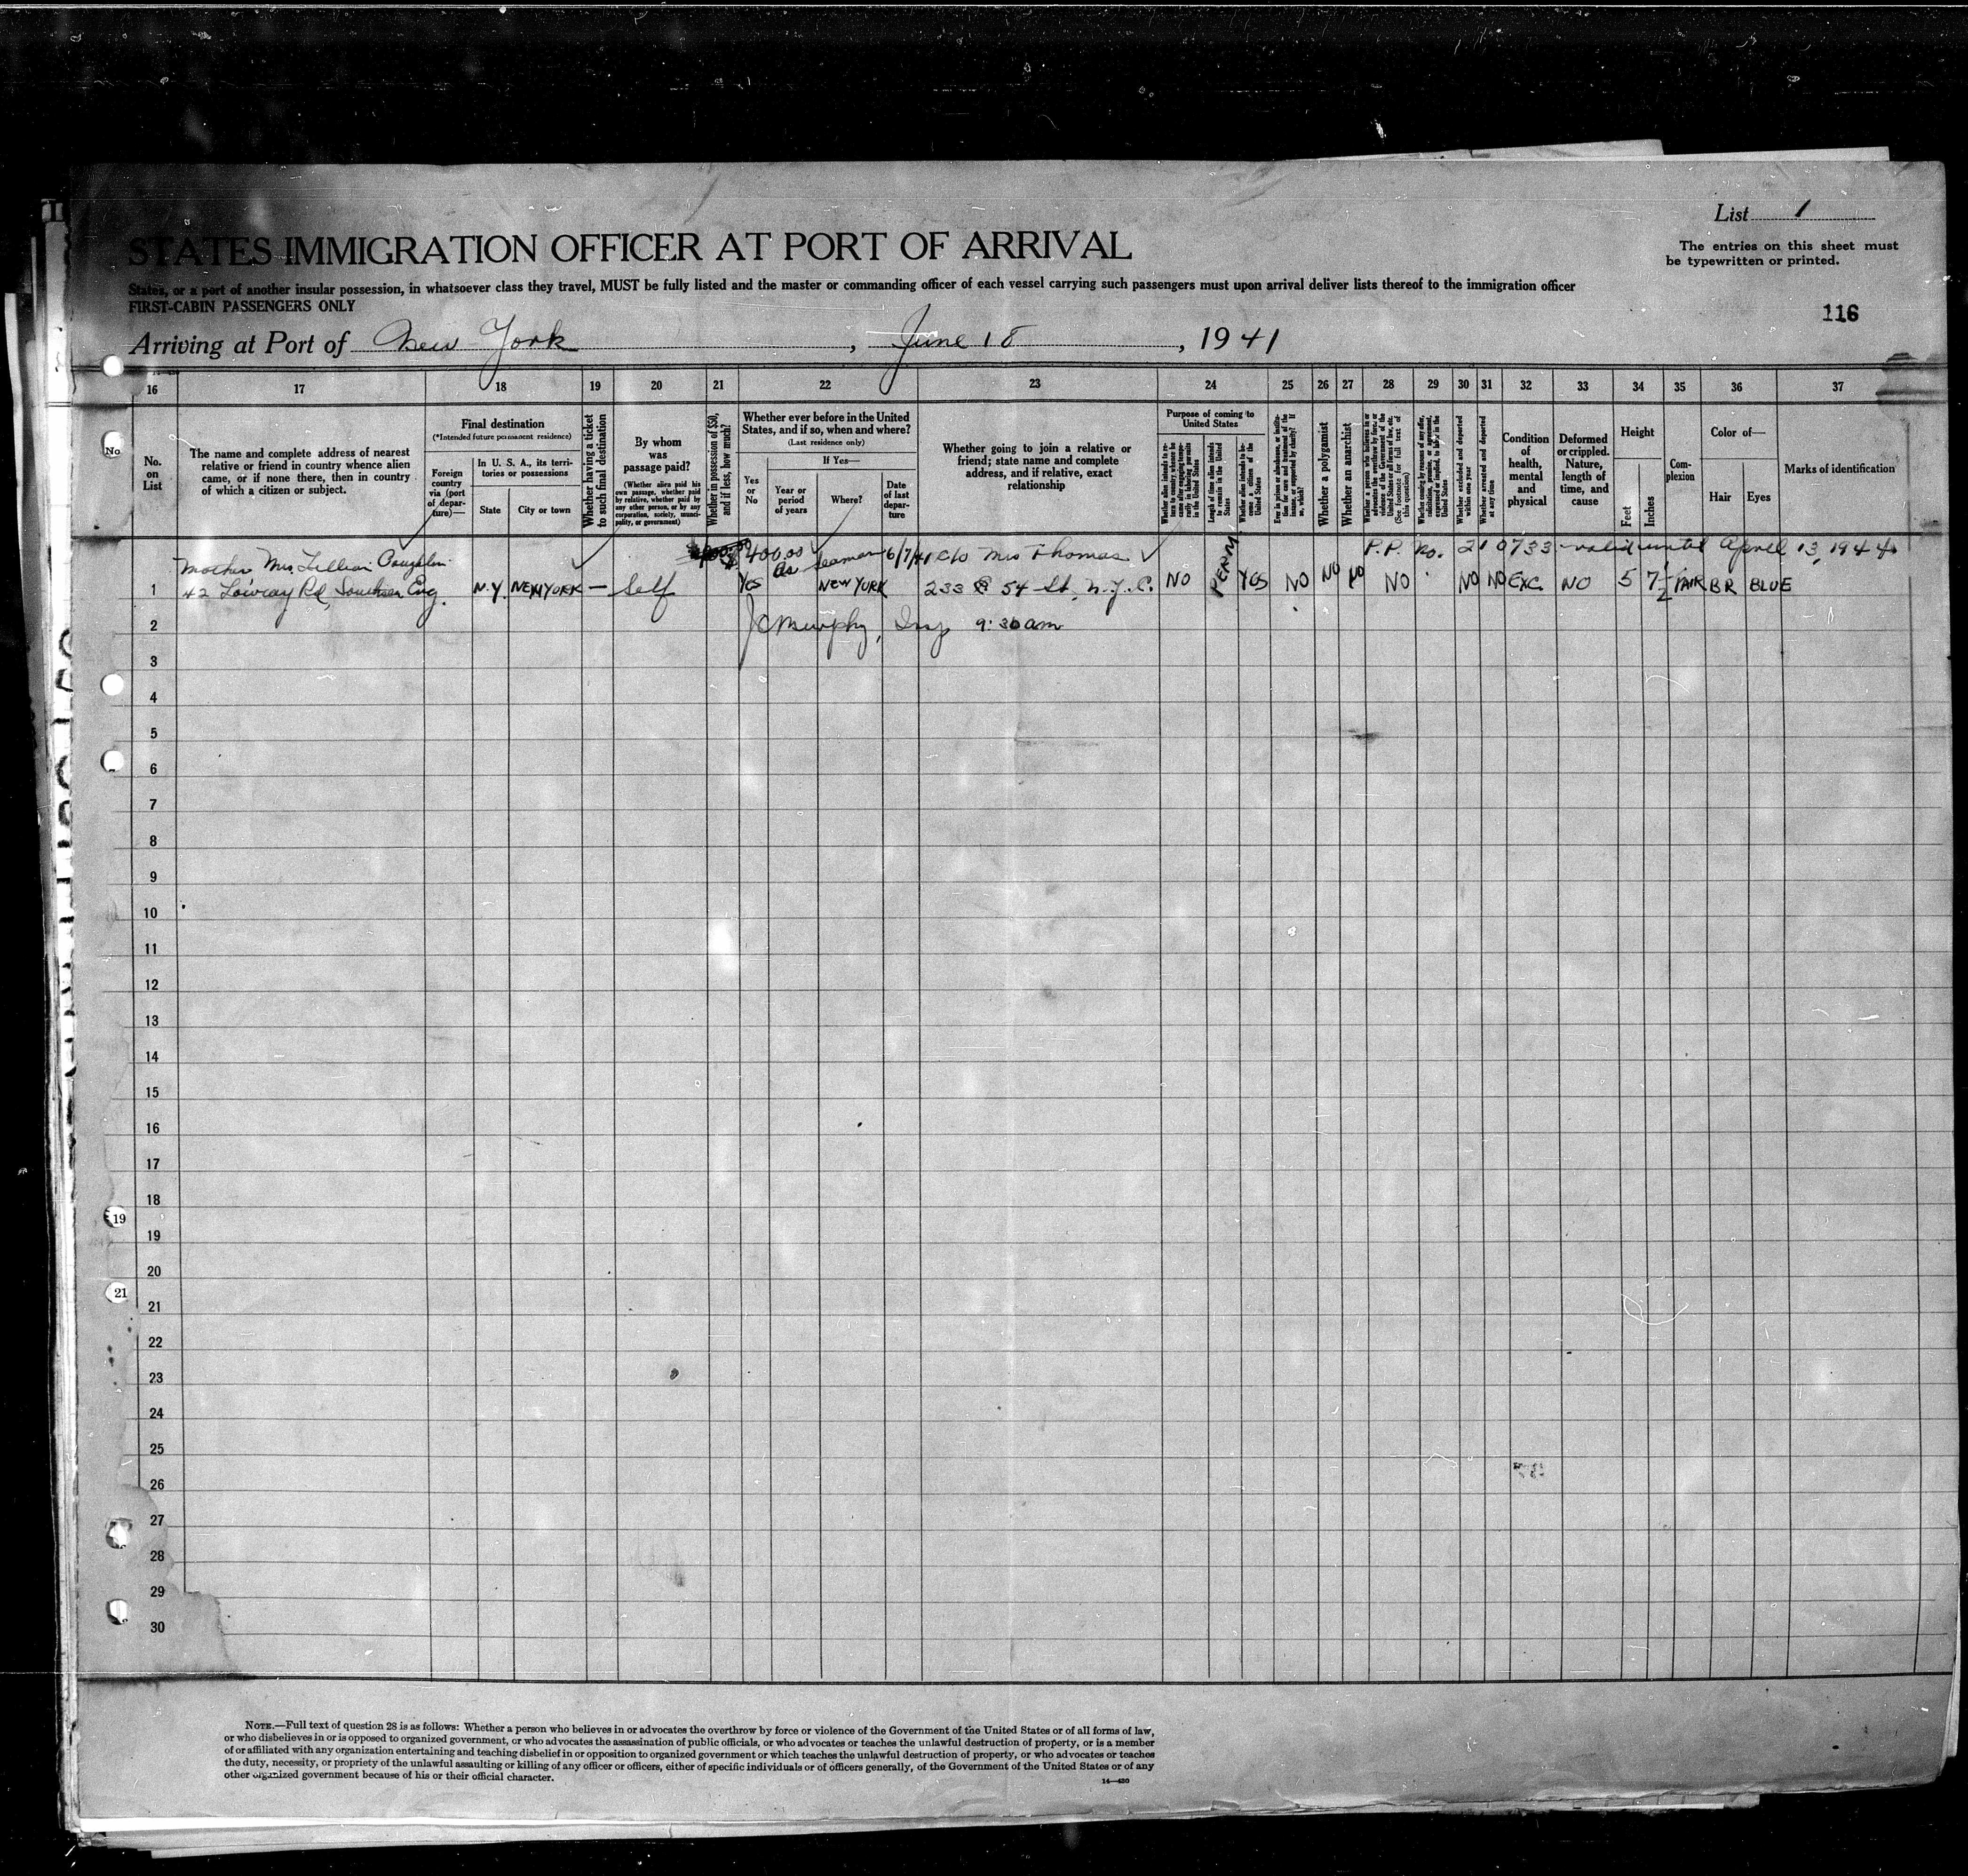 List 1
The entries on this sheet must
be typewritten or printed.
STATES IMMIGRATION OFFICER AT PORT OF ARRIVAL
States, or a port of another insular possession, in whatsoever class they travel, MUST be fully listed and the master or commanding officer of each vessel carrying such passengers must upon arrival deliver lists thereof to the immigration officer
FIRST-CABIN PASSENGERS ONLY
116
Arriving at Port of New York, June 18, 1941
16 17 18 19 20 21 22 23 24 25 26 27 28 29 30 31 32 33 34 35 36 37
No.
No. on List
The name and complete address of nearest
relative or friend in country whence alien
came, or if none there, then in country
of which a citizen or subject.
Final destination
(*Intended future permanent residence)
Foreign country via (port of departure)—
In U. S. A., its territories or possessions
State
City or town
Whether having a ticket to such final destination
By whom was passage paid?
(Whether alien paid his own passage, whether paid by relative, whether paid by any other person, or by any corporation, society, municipality, or government)
Whether in possession of $50, and if less, how much?
Whether ever before in the United
States, and if so, when and where?
(Last residence only)
Yes or No
If Yes—
Year or period of years
Where?
Date of last departure
Whether going to join a relative or
friend; state name and complete
address, and if relative, exact
relationship
Purpose of coming to United States
Whether alien intends to return to country whence he came after engaging temporarily in laboring pursuits in the United States
Length of time alien intends to remain in the United States
Whether alien intends to become a citizen of the United States
Ever in prison or almshouse, or institution for care and treatment of the insane, or supported by charity? If so, which?
Whether a polygamist
Whether an anarchist
Whether a person who believes in or advocates the overthrow by force or violence of the Government of the United States or all forms of law, etc. (See footnote for full text of this question)
Whether coming by reasons of any offer, solicitation, promise, or agreement, expressed or implied, to labor in the United States
Whether excluded and deported within one year
Whether arrested and deported at any time
Condition of health, mental and physical
Deformed or crippled. Nature, length of time, and cause
Height
Feet
Inches
Complexion
Color of—
Hair
Eyes
Marks of identification
Mother Mrs. Lillian Coughlin 400.00 As Seaman 6/7/41 c/o Mrs Thomas P.P. No. 210733 - valid until April 13, 1944
1 42 Rd, Eng. N.Y. NEW YORK — Self YES NEW YORK 233 E 54 St. N.Y.C. NO PERM YES NO NO NO NO NO NO EXC. NO 5 7½ FAIR BR BLUE
2 JC Murphy, Insp 9:30 am
3
4
5
6
7
8
9
10
11
12
13
14
15
16
17
18
19
20
21
22
23
24
25
26
27
28
29
30
19
21
NOTE.—Full text of question 28 is as follows: Whether a person who believes in or advocates the overthrow by force or violence of the Government of the United States or of all forms of law,
or who disbelieves in or is opposed to organized government, or who advocates the assassination of public officials, or who advocates or teaches the unlawful destruction of property, or is a member
of or affiliated with any organization entertaining and teaching disbelief in or opposition to organized government or which teaches the unlawful destruction of property, or who advocates or teaches
the duty, necessity, or propriety of the unlawful assaulting or killing of any officer or officers, either of specific individuals or of officers generally, of the Government of the United States or of any
other organized government because of his or their official character.
14—430